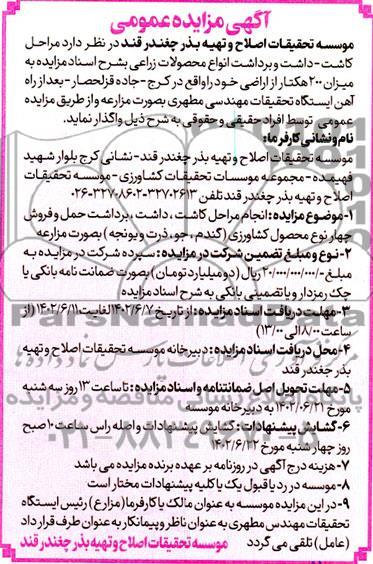 آگهی مزایده عمومی
موسسه تحقیقات اصلاح و تهیه بذر چغندر قند در نظر دارد مراحل
کاشت - داشت و برداشت انواع محصولات زراعی بشرح اسناد مزایده به
میزان ۲۰۰ هکتار از اراضی خود را واقع در کرج - جاده قزلحصار - بعد از راه
آهن ایستگاه تحقیقات مهندسی مطهری بصورت مزارعه و از طریق مزایده
عمومی توسط افراد حقیقی و حقوقی به شرح ذیل واگذار نماید.
نام و نشانی کارفرما:
موسسه تحقیقات اصلاح و تهیه بذر چغندر قند - نشانی کرج بلوار شهید
فهمیده - مجموعه موسسات تحقیقات کشاورزی - موسسه تحقیقات
اصلاح و تهیه بذر چغندر قند تلفن ۳۲۷۰۲۶۱۳-۳۲۷۰۰۸۶۰-۰۲۶
۱- موضوع مزایده: انجام مراحل کاشت، داشت، برداشت حمل و فروش
چهار نوع محصول کشاورزی (گندم، جو، ذرت و یونجه) بصورت مزارعه
۲- نوع و مبلغ تضمین شرکت در مزایده: سپرده شرکت در مزایده به
مبلغ ۲۰/۰۰۰/۰۰۰/۰۰۰/- ریال (دو میلیارد تومان) بصورت ضمانت نامه بانکی یا
چک رمزدار و یا تضمینی بانکی به شرح اسناد مزایده
۳- مهلت دریافت اسناد مزایده: از تاریخ ۱۴۰۲/۶/۷ لغایت ۱۴۰۲/۶/۱۱ (از
ساعت ۸/۰۰ الی ۱۳/۰۰)
۴- محل دریافت اسناد مزایده: دبیرخانه موسسه تحقیقات اصلاح و تهیه
بذر چغندر قند
۵- مهلت تحویل اصل ضمانتنامه و اسناد مزایده: تا ساعت ۱۳ روز سه شنبه
مورخ ۱۴۰۲/۰۶/۲۱ به دبیرخانه موسسه
۶- گشایش پیشنهادات: گشایش پیشنهادات واصله راس ساعت ۱۰ صبح
روز چهار شنبه مورخ ۱۴۰۲/۶/۲۲
۷- هزینه درج آگهی در روزنامه بر عهده برنده مزایده می باشد
۸- موسسه در رد یا قبول یک یا کلیه پیشنهادات مختار است
۹- در این مزایده موسسه به عنوان مالک یا کارفرما (مزارع) رئیس ایستگاه
تحقیقات مهندس مطهری به عنوان ناظر و پیمانکار به عنوان طرف قرار داد
(عامل) تلقی می گردد
موسسه تحقیقات اصلاح و تهیه بذر چغندر قند